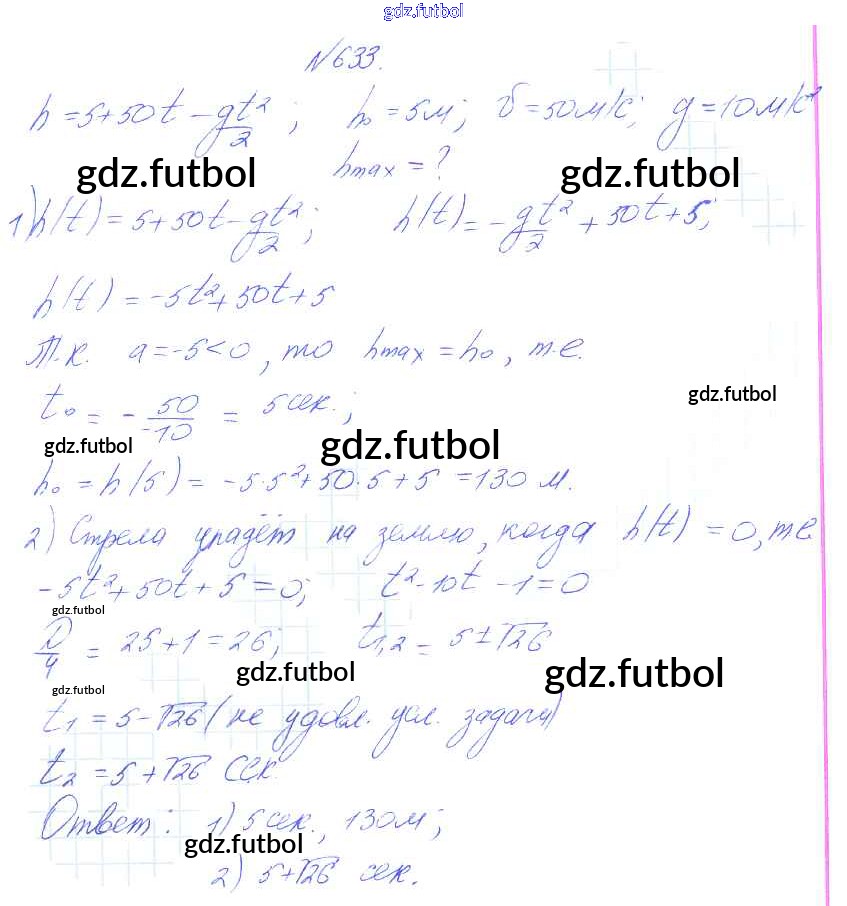 gdz.futbol
№633.
h = 5+50t - gt²/2 ; h₀ = 5м; v = 50м/с; g = 10м/с²
hmax = ?
gdz.futbol gdz.futbol
1) h(t) = 5+50t - gt²/2 ; h(t) = -gt²/2 + 50t+5;
h(t) = -5t²+50t+5
Т.к. a = -5<0, то hmax = h₀, т.е.
gdz.futbol
t₀ = - 50/-10 = 5 сек.;
gdz.futbol gdz.futbol
h₀ = h(5) = -5·5²+50·5+5 = 130 м.
2) Стрела упадёт на землю, когда h(t) = 0, т.е
-5t²+50t+5=0; t²-10t-1=0
gdz.futbol
D/4 = 25+1=26; t₁,₂ = 5±√26
gdz.futbol gdz.futbol
gdz.futbol
t₁ = 5-√26 (не удовл. усл. задачи)
t₂ = 5+√26 сек
Ответ: 1) 5 сек., 130м;
gdz.futbol
2) 5+√26 сек.